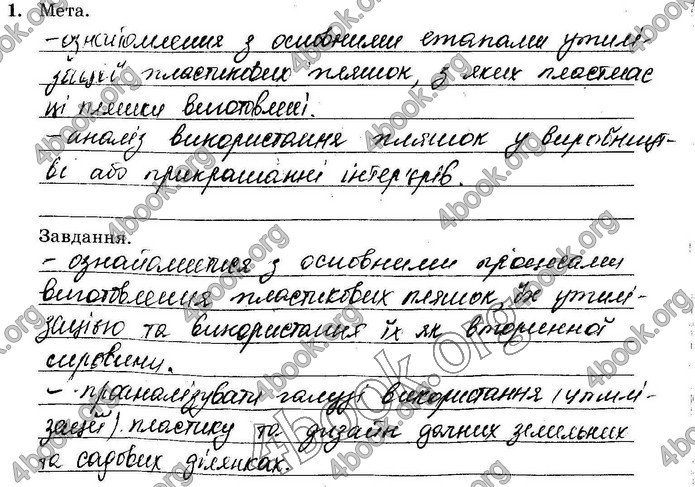 1. Мета.
- ознайомлення з основними етапами утилі-
зації пластикових пляшок, з яких пластмас
ці пляшки виготовлені.
- аналіз використання пляшок у виробницт-
ві або прикрашанні інтер'єрів.
Завдання.
- ознайомитися з основними процесами
виготовлення пластикових пляшок, їх утилі-
зацією та використання їх як вторинної
сировини.
- проаналізувати галузі використання (утилі-
зації) пластику та дизайн дачних земельних
та садових ділянках.
4book.org